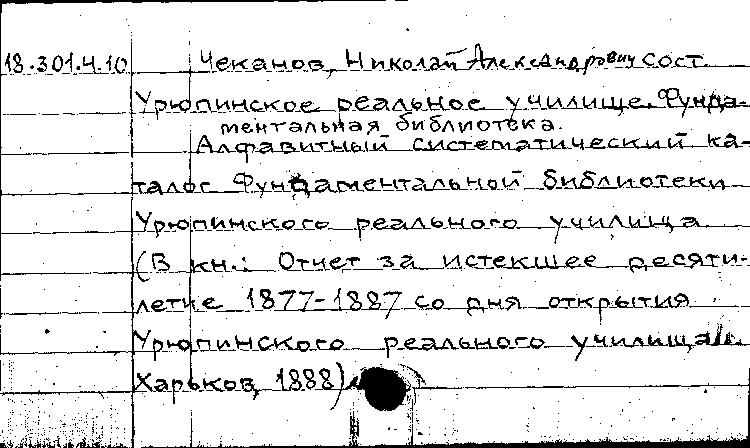 18.301.4.10 Чеканов, Николай Александрович сост.
Урюпинское реальное училище. Фунда-
ментальная библиотека.
Алфавитный систематический ка-
талог Фундаментальной библиотеки
Урюпинского реального училища
(В кн.: Отчет за истекшее десяти-
летие 1877-1887 со дня открытия
Урюпинского реального училища.
Харьков, 1888)